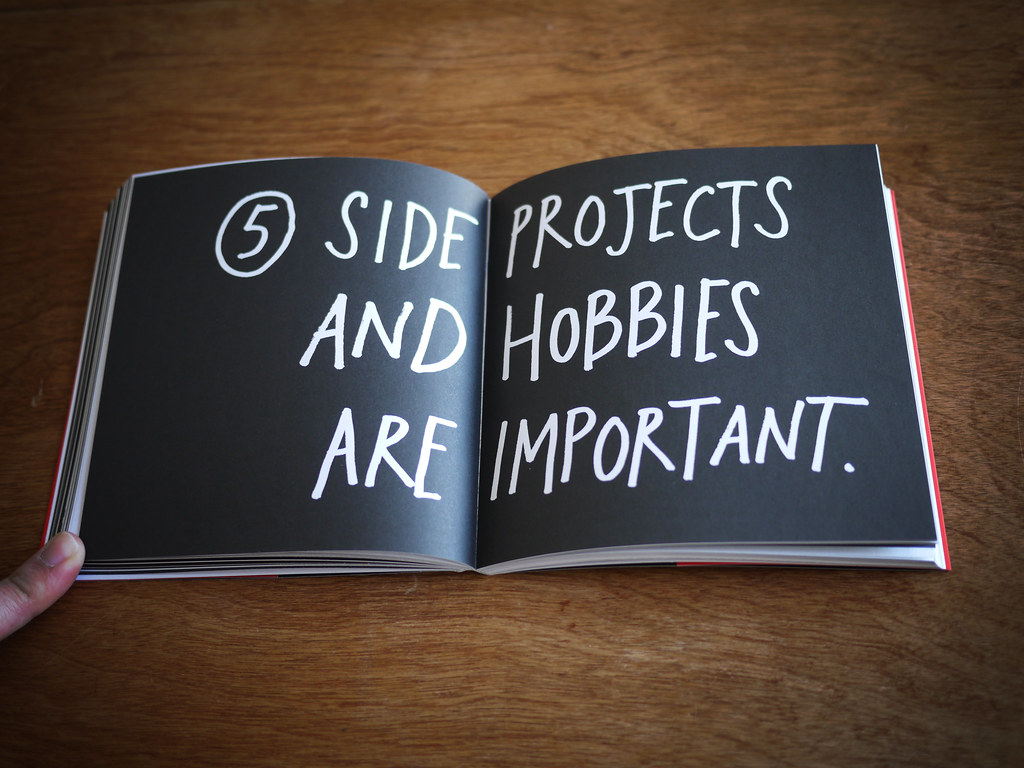 ⑤ SIDE PROJECTS
AND HOBBIES
ARE IMPORTANT.